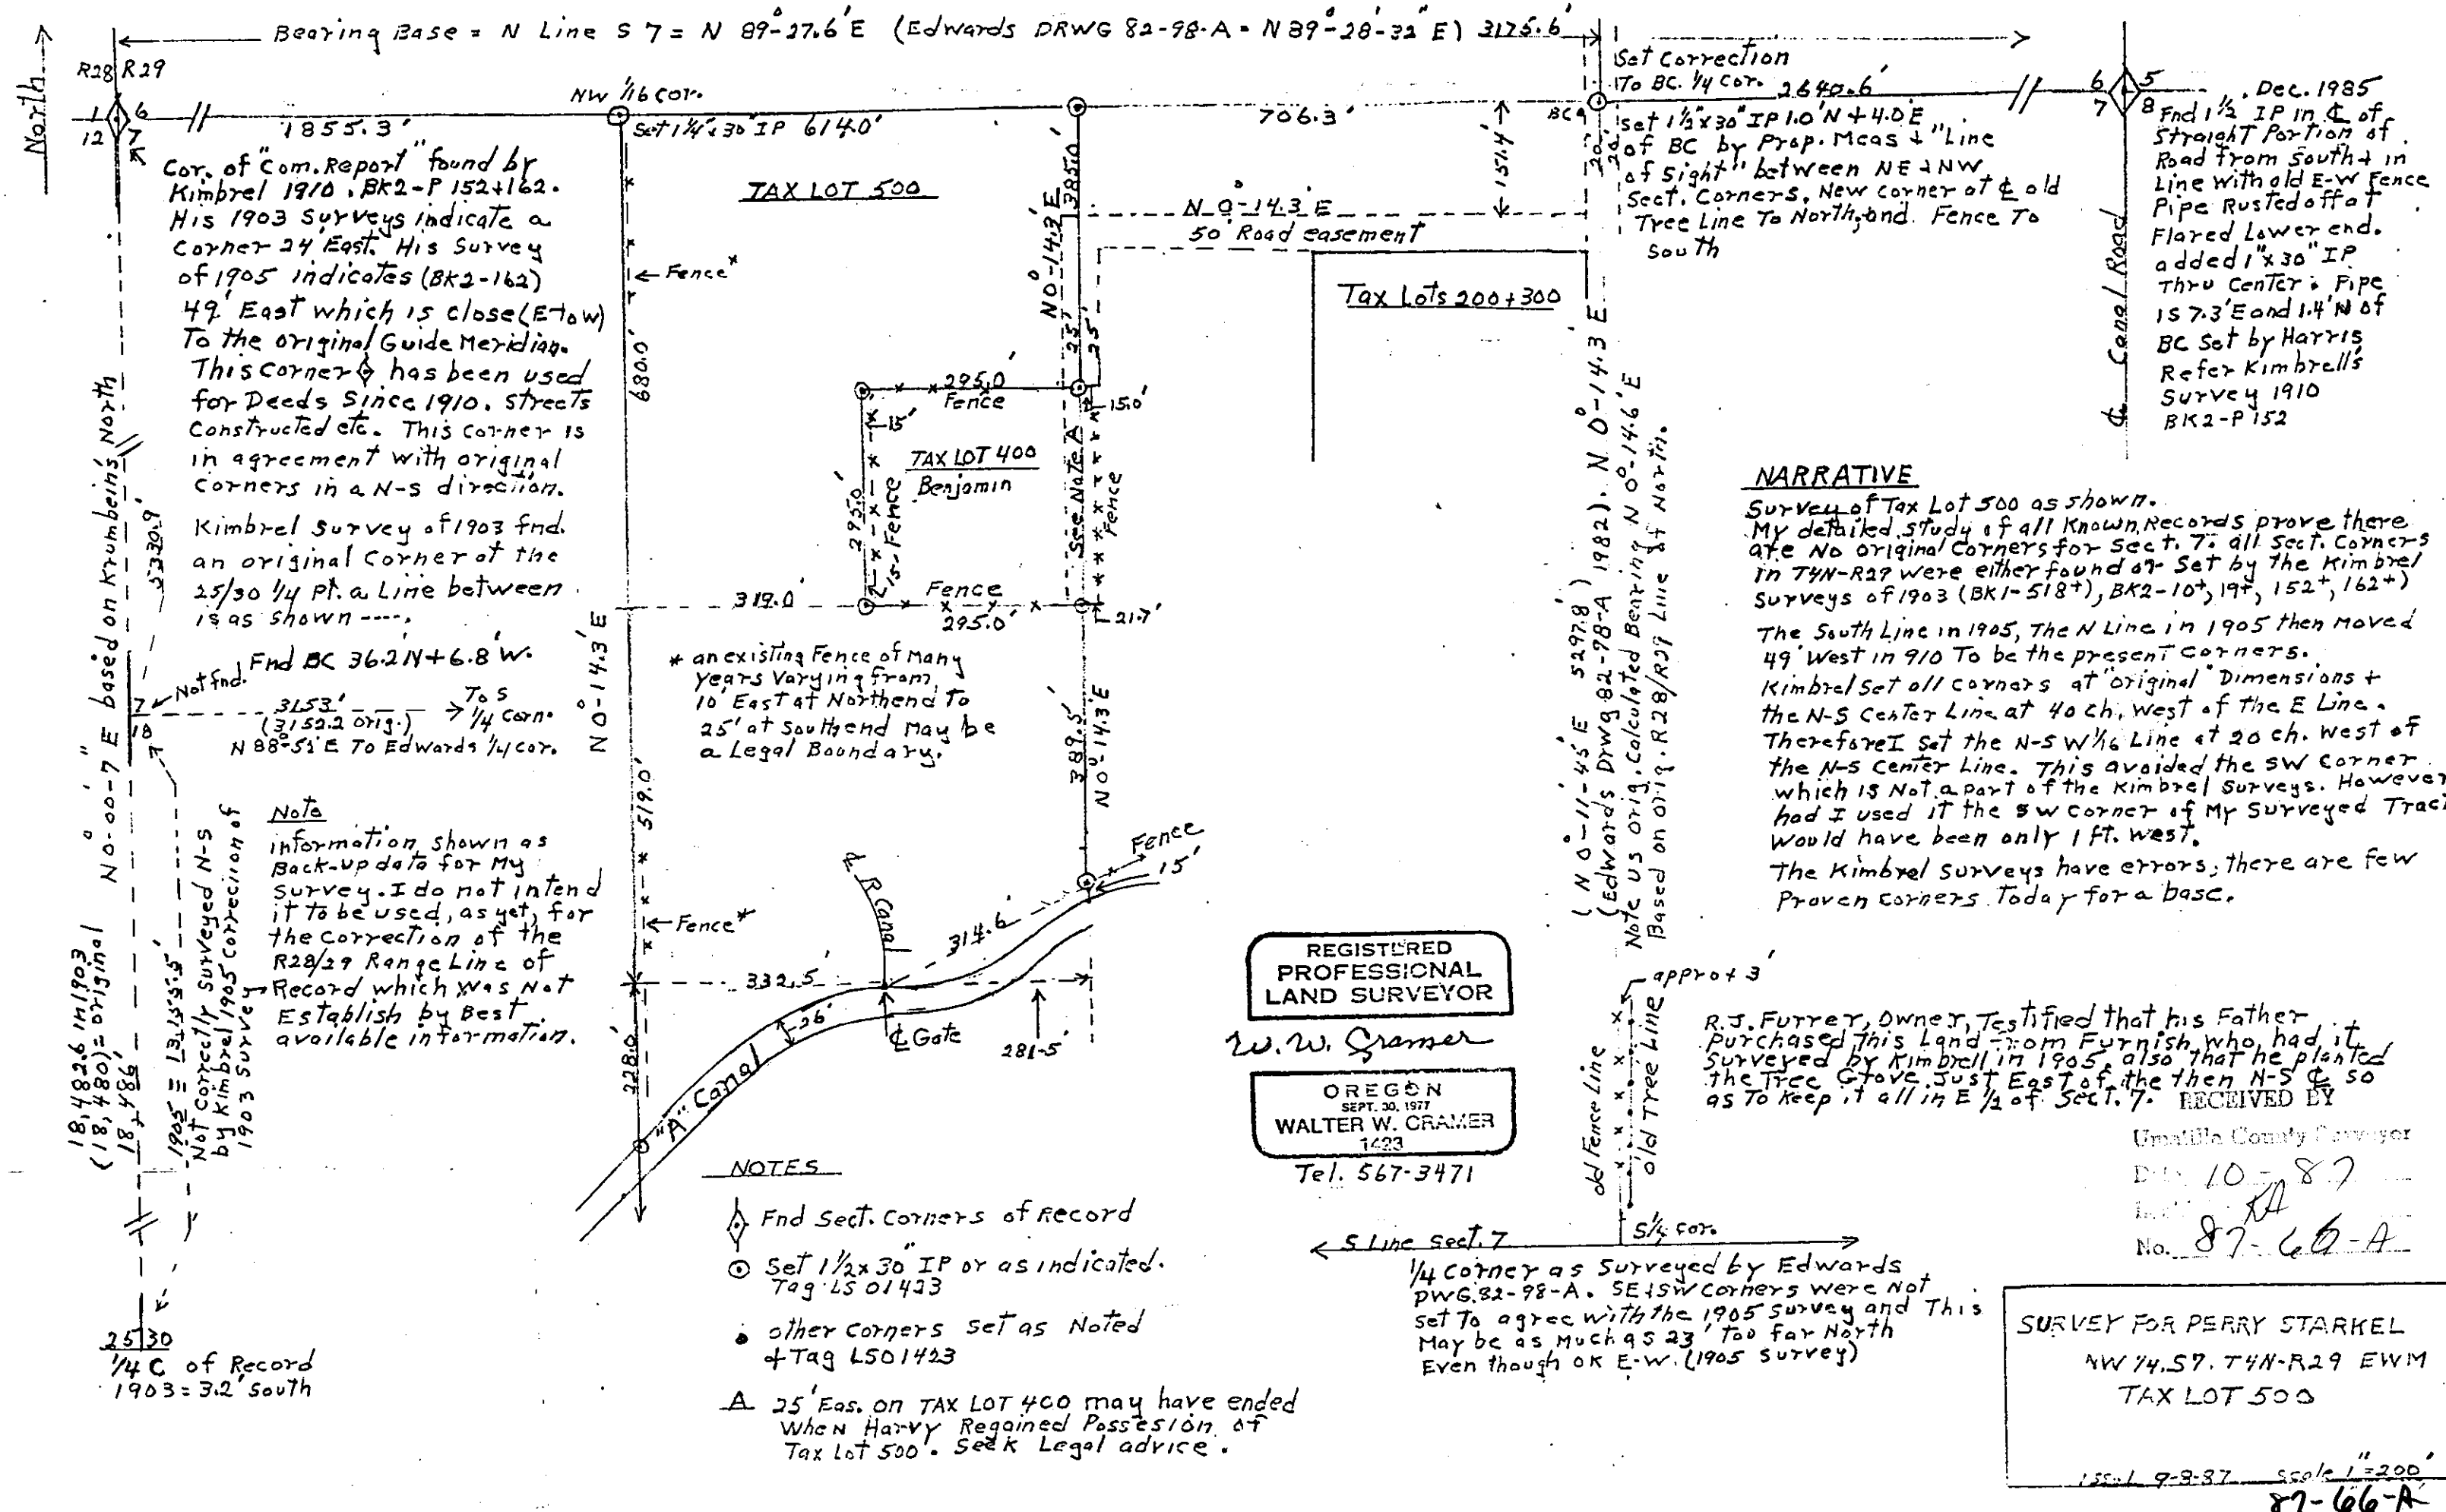 Bearing Base = N Line S 7 = N 89°-27.6' E (Edwards DRWG 82-98-A = N 89°-28'-32" E) 3175.6'
North
R28 R29
1 6
12 7
1855.3'
NW 1/16 cor.
Set 1 1/4" x 30" IP 614.0'
706.3'
BC
Set Correction
To BC. 1/4 Cor. 2640.6'
set 1 1/2" x 30" IP 1.0' N + 4.0' E
of BC by Prop. Meas + "Line
of Sight" between NE + NW
Sect. Corners. New corner at ℄ old
Tree Line To North, and Fence To
South
20' 20'
6 5
7 8
Dec. 1985
Fnd 1 1/2 IP in ℄ of
Straight Portion of
Road from South + in
Line with old E-W Fence
Pipe Rusted off at
Flared Lower end.
added 1" x 30" IP
Thru Center. Pipe
is 7.3' E and 1.4' N of
BC Set by Harris
Refer Kimbrell's
Survey 1910
BK2-P152
℄ Canal Road
Cor. of "Com. Report" found by
Kimbrel 1910. BK2-P 152+162.
His 1903 Surveys indicate a
Corner 24' East. His Survey
of 1905 indicates (BK2-162)
49' East which is close (E to W)
To the original Guide Meridian.
This Corner has been used
for Deeds Since 1910. streets
Constructed etc. This corner is
in agreement with original
Corners in a N-S direction.
Kimbrel Survey of 1903 fnd.
an original Corner at the
25/30 1/4 Pt. a Line between
is as shown ----.
Fnd BC 36.2 N + 6.8' W.
Not fnd.
7
18
3153' To S
(3152.2 orig.) 1/4 Corn.
N 88°-51' E To Edwards 1/4 cor.
N 0°-00'-7" E based on Krumbeins' North
5330.9'
18,482.6 in 1903
(18,480) = original
18,486'
1905 = 13,155.5'
Not Correctly Surveyed N-S
by Kimbrel 1905 correction of
1903 Survey
Note
information shown as
Back-up data for My
Survey. I do not intend
it to be used, as yet, for
the correction of the
R28/29 Range Line of
Record which was Not
Establish by Best
available information.
25 30
1/4 C of Record
1903 = 3.2' South
TAX LOT 500
← Fence*
680.0'
N 0°-14.3' E
385.0'
N 0°-14.3' E
151.4'
N 0°-14.3' E
50' Road easement
Tax Lots 200+300
25' 25'
295.0'
Fence
15.0'
15'
TAX LOT 400
Benjamin
295.0'
15'-Fence
See Note A
Fence
319.0'
Fence
295.0'
21.7'
N 0°-14.3' E
* an existing Fence of Many
years Varying from
10' East at North end To
25' at South end May be
a Legal Boundary.
389.5'
N 0°-14.3' E
519.0'
← Fence*
℄ R Canal
Fence
15'
314.6'
332.5'
26'
℄ Gate
281.5'
228.0'
"A" Canal
(N 0°-11'-45" E 5297.8')
(Edwards Drwg 82-98-A 1982). N 0°-14.3' E
Note US orig. Calculated Bearing N 0°-14.6' E
Based on orig. R28/R29 Line of North.
NARRATIVE
Survey of Tax Lot 500 as shown.
My detailed study of all Known Records prove there
are No original Corners for Sect. 7. all Sect. Corners
in T4N-R29 were either found or Set by the Kimbrel
Surveys of 1903 (BK1-518+), BK2-10+, 19+, 152+, 162+)
The South Line in 1905, The N Line in 1905 then Moved
49' West in 910 To be the present Corners.
Kimbrel Set all corners at "original" Dimensions +
the N-S Center Line at 40 ch. west of the E Line.
Therefore I set the N-S W 1/16 Line at 20 ch. west of
the N-S Center Line. This avoided the SW Corner
which is Not a part of the Kimbrel Surveys. However
had I used it the SW Corner of My Surveyed Tract
Would have been only 1 ft. West.
The Kimbrel Surveys have errors, there are few
Proven Corners Today for a base.
REGISTERED
PROFESSIONAL
LAND SURVEYOR
W. W. Cramer
OREGON
SEPT. 30, 1977
WALTER W. CRAMER
1423
Tel. 567-3471
approx 3'
old Fence Line
old Tree Line
R.J. Furrer, Owner, Testified that his Father
Purchased This Land From Furnish who had it
Surveyed by Kimbrell in 1905, also that he planted
the Tree Grove Just East of the then N-S ℄ so
as To Keep it all in E 1/2 of Sect. 7.
RECEIVED BY
Umatilla County Surveyor
Date 10-87
RA
No. 87-66-A
NOTES
Fnd Sect. Corners of Record
Set 1 1/2 x 30" IP or as indicated.
Tag LS 01423
other Corners Set as Noted
+ Tag LS01423
A 25' Eas. on TAX LOT 400 may have ended
When Harvy Regained Possesion of
Tax Lot 500. Seek Legal advice.
S Line Sect. 7
S 1/4 cor.
1/4 Corner as Surveyed by Edwards
DWG. 82-98-A. SE + SW Corners were Not
set To agree with the 1905 Survey and This
May be as Much as 23' Too far North
Even though OK E-W. (1905 Survey)
SURVEY FOR PERRY STARKEL
NW 1/4. S7. T4N-R29 EWM
TAX LOT 500
9-8-87 Scale 1"=200'
87-66-A